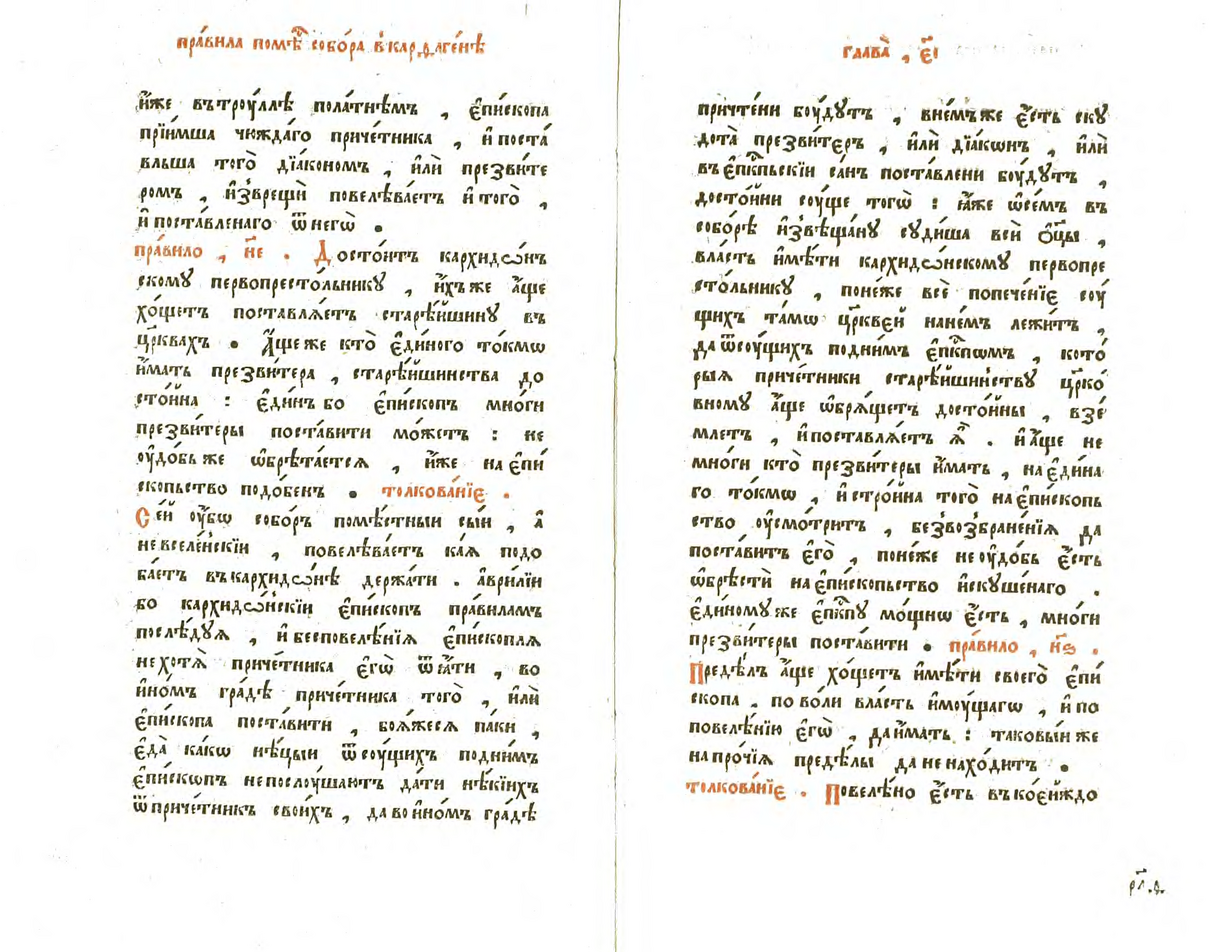 пра́вила помѣ́ⷭ҇ собо́ра в̾кардаге́нѣ
и҆́же вътроу́ллѣ пола́тнѣмъ , є҆пи́скопа
прїи́мша чюжда́го приче́тника , и҆ поста́
вльша того̀ дїа́кономъ , и҆лѝ презви́те
ромъ , и҆з̾врещѝ повелѣва́етъ и҆ того̀ ,
и҆ поста́вленаго ѿ негѡ̀ .
пра́вило , н҃е . Досто́итъ кархидѡ́нъ
скомꙋ̀ первопресто́льникꙋ , и҆́хъже а҆́ще
хо́щетъ поставлѧ́етъ старѣ́йшинꙋ въ
цр҃квахъ . А҆́ще же кто̀ є҆ди́ного то́кмѡ
и҆́мать презви́тера , старѣ́йшинства до
сто́йна : є҆ди́нъ бо є҆пи́скопъ мно́ги
презви́теры поста́вити мо́жетъ : не
оу҆до́бь же ѡ҆брѣта́етсѧ , и҆́же на є҆пи́
скопьство подо́бенъ . толкова́нїе .
Се́й оу҆́бѡ собо́ръ помѣ́стныи сы́и , а҆
не вселе́нскїи , повелѣва́етъ ка́ѧ подо
ба́етъ въ кархидѡ́нѣ держа́ти . а҆врилїи
бо кархидѡ́нскїи є҆пи́скопъ пра́виламъ
послѣ́дꙋѧ , и҆ бесповелѣ́нїѧ є҆пи́скоплѧ
не хотѧ̀ приче́тника є҆гѡ̀ ѿꙗ́ти , во
и҆но́мъ гра́дѣ приче́тника того̀ , и҆лѝ
є҆пи́скопа поста́вити , боѧ́жесѧ па́ки ,
є҆да̀ ка́кѡ нѣ́цыи ѿ соу́щихъ подни́мъ
є҆пи́скѡпъ непослоу́шаютъ да́ти нѣ́кїихъ
ѿ приче́тникъ свои́хъ , да во и҆но́мъ гра́дѣ
глава̀ , є҃і
причте́ни боу́дꙋтъ , вне́мъже є҆́сть скꙋ
дота̀ презви́теръ , и҆лѝ дїа́кѡнъ , и҆лѝ
въ є҆пⷭ҇кпьскїи са́нъ поста́влени боу́дꙋтъ ,
досто́йни соу́ще тогѡ̀ : ꙗ҆́же ѡ҆се́мъ въ
собо́рѣ и҆з̾вѣ́щанꙋ сꙋди́ша всѝ ѻ҆ц҃ы̀ ,
вла́сть и҆мѣ́ти кархидѡ́нскомꙋ первопре
сто́льникꙋ , поне́же всѐ попече́нїе соу́
щихъ та́мѡ цр҃кве́й нане́мъ лежи́тъ ,
да ѿ соу́щихъ подни́мъ є҆пⷭ҇кпѡмъ , кото́
рыѧ приче́тники старѣ́йшин̾ствꙋ цр҃ко́
вномꙋ а҆́ще ѡ҆брѧ́щетъ досто́йны , взе́
млетъ , и҆ поставлѧ́етъ ѧ҆̀ . и҆ а҆́ще не
мно́ги кто̀ презви́теры и҆́мать , на є҆ди́на
го то́кмѡ , и҆ стро́йна того̀ на є҆пи́скопь
ство оу҆смо́тритъ , без̾воз̾бране́нїѧ да
поста́витъ є҆го̀ , поне́же не оу҆до́бь є҆́сть
ѡ҆брѣстѝ на є҆пи́скопьство и҆скꙋше́наго .
є҆ди́номꙋ же є҆пⷭ҇кпꙋ мо́щнѡ є҆́сть , мно́ги
презви́теры поста́вити . пра́вило , н҃ѕ .
Предѣ́лъ а҆́ще хо́щетъ и҆мѣ́ти своего̀ є҆пи́
скопа , по во́ли вла́сть и҆моу́щагѡ , и҆ по
повелѣ́нїю є҆гѡ̀ , да и҆́мать : таковы́и же
на про́чїѧ предѣ́лы да не нахо́дитъ .
толкова́нїе . Повелѣ́но є҆́сть въ кое́йждо